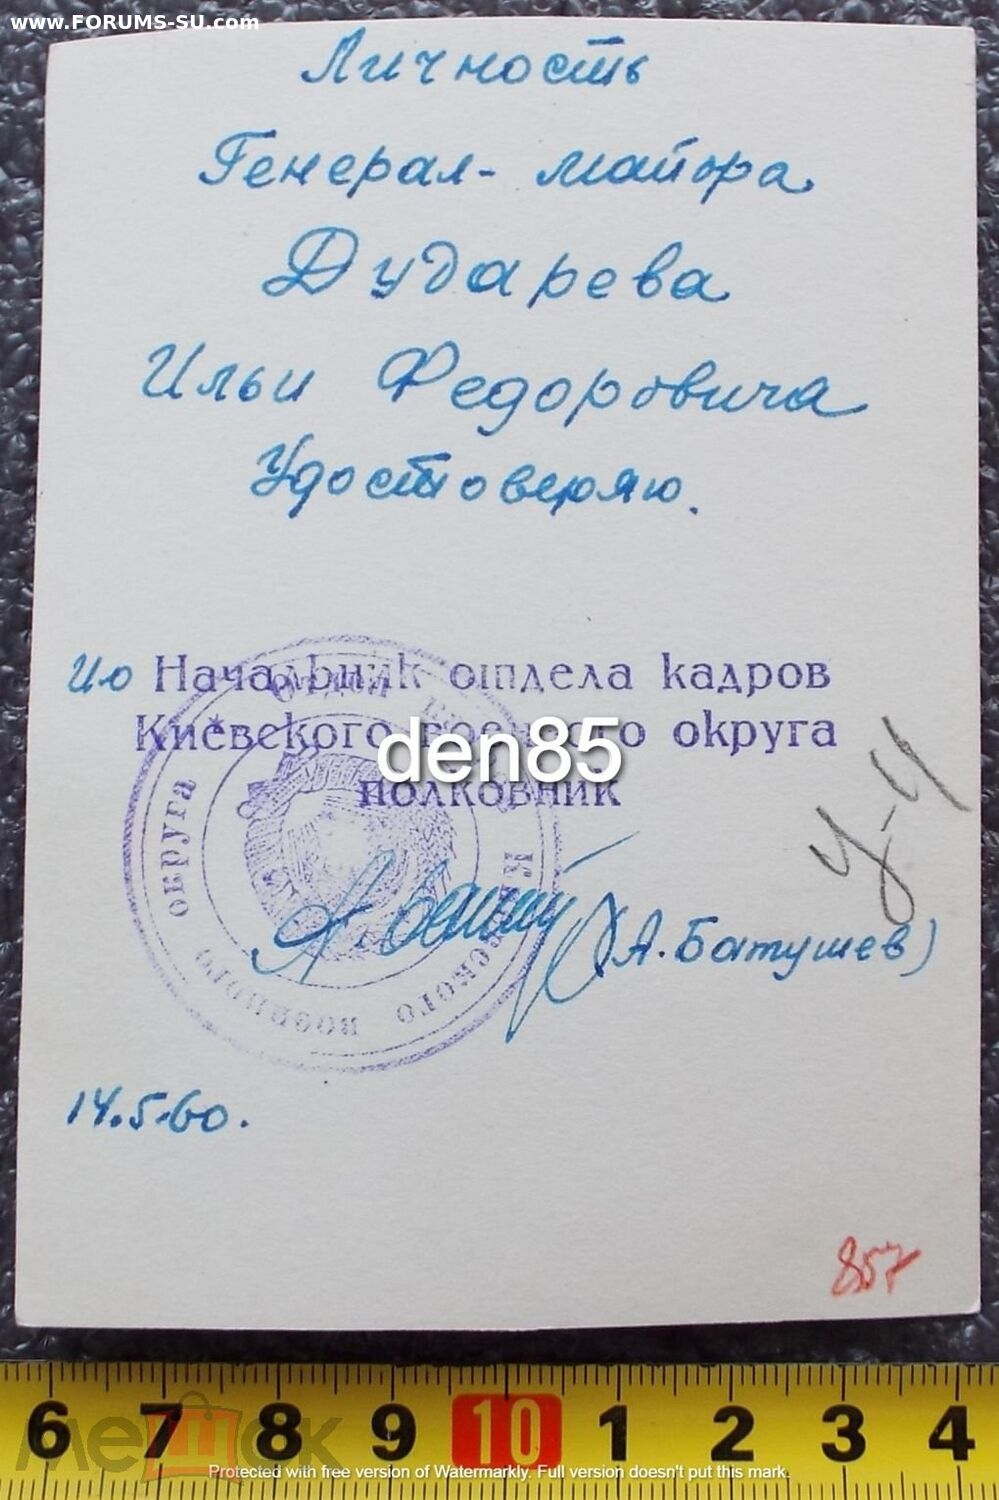 www.FORUMS-SU.com
Личность
Генерал-майора
Дударева
Ильи Федоровича
Удостоверяю.
И-о Начальник отдела кадров
Киевского военного округа
den85
полковник
округа
военного
(А. Батушев)
14.5.60.
857
6 7 8 9 10 1 2 3 4
мешок
Protected with free version of Watermarkly. Full version doesn't put this mark.